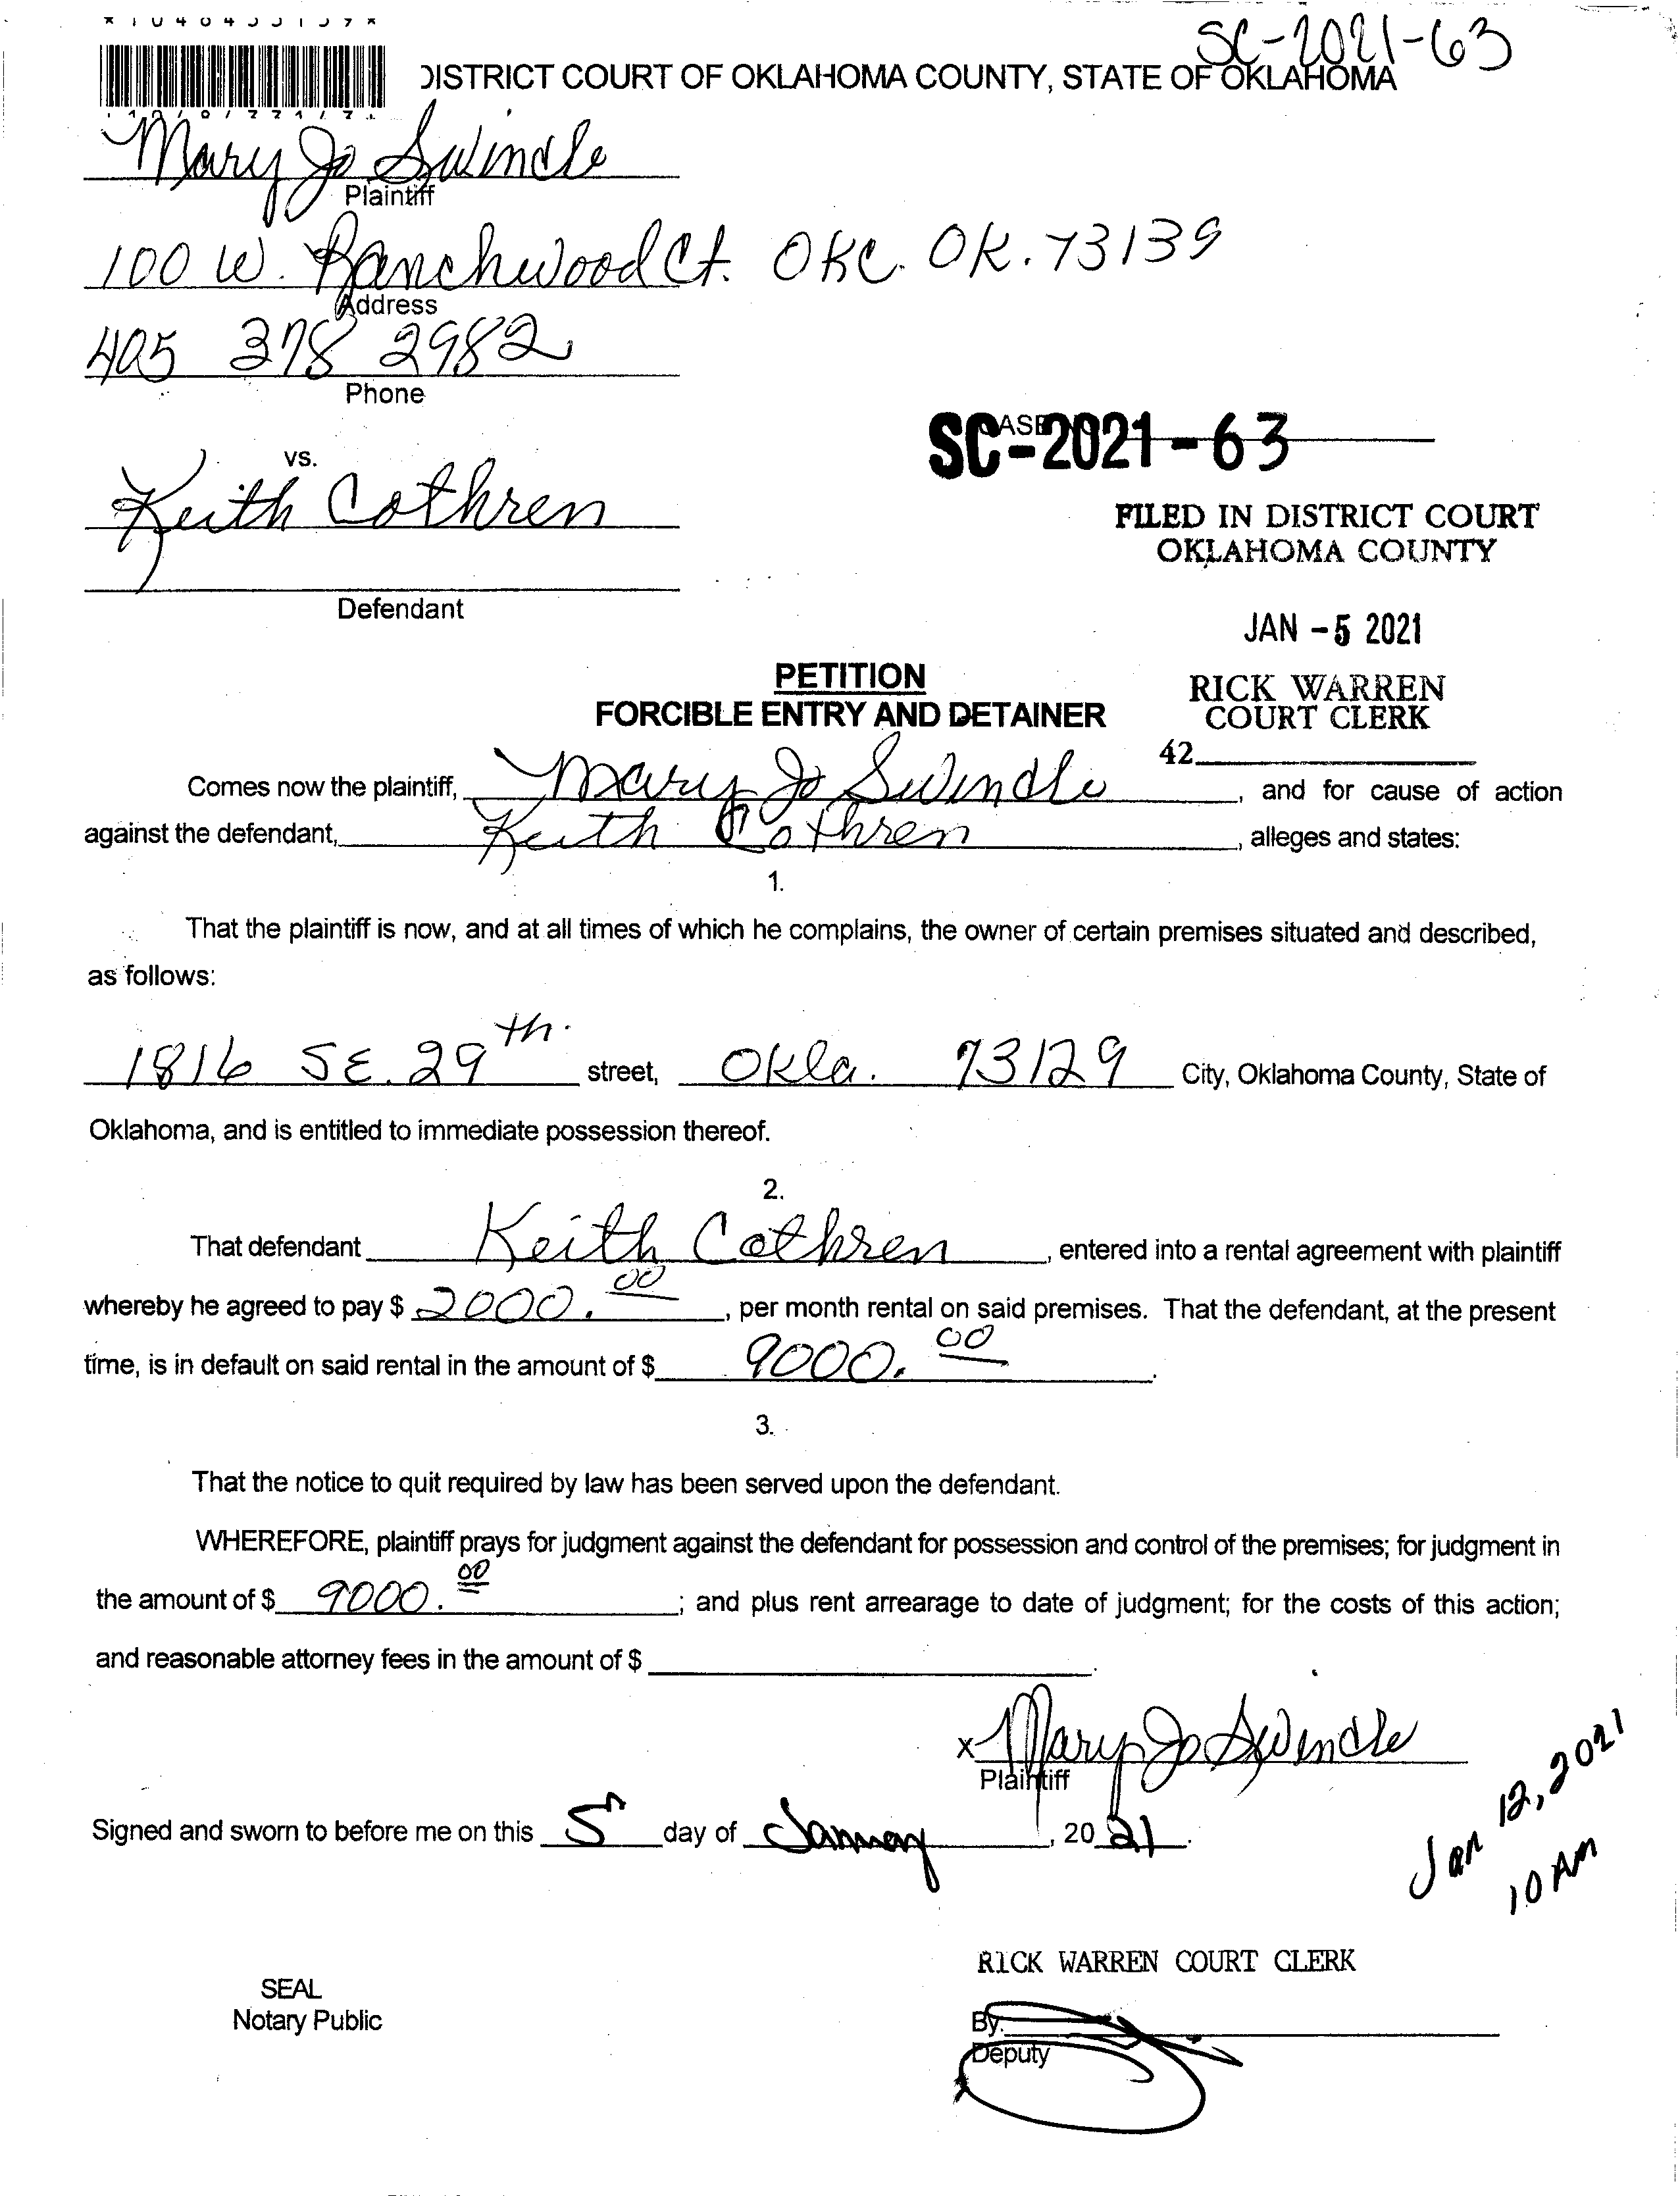 SC-2021-63
DISTRICT COURT OF OKLAHOMA COUNTY, STATE OF OKLAHOMA
Mary Jo Swindle
Plaintiff
100 W. Ranchwood Ct. OKC. OK. 73139
Address
405 378 2982
Phone
SC-2021-63
vs.
Keith Cothren
FILED IN DISTRICT COURT
OKLAHOMA COUNTY
Defendant
JAN -5 2021
PETITION
FORCIBLE ENTRY AND DETAINER
RICK WARREN
COURT CLERK
42
Comes now the plaintiff, Mary Jo Swindle, and for cause of action
against the defendant, Keith Cothren, alleges and states:
1.
That the plaintiff is now, and at all times of which he complains, the owner of certain premises situated and described,
as follows:
1816 SE. 29th. street, Okla. 73129 City, Oklahoma County, State of
Oklahoma, and is entitled to immediate possession thereof.
2.
That defendant Keith Cothren, entered into a rental agreement with plaintiff
whereby he agreed to pay $ 2000.00, per month rental on said premises. That the defendant, at the present
time, is in default on said rental in the amount of $ 9000.00.
3.
That the notice to quit required by law has been served upon the defendant.
WHEREFORE, plaintiff prays for judgment against the defendant for possession and control of the premises; for judgment in
the amount of $ 9000.00; and plus rent arrearage to date of judgment; for the costs of this action;
and reasonable attorney fees in the amount of $ .
x Mary Jo Swindle
Plaintiff
Signed and sworn to before me on this 5 day of January, 2021.
Jan 12, 2021
10 AM
RICK WARREN COURT CLERK
SEAL
Notary Public
By:
Deputy